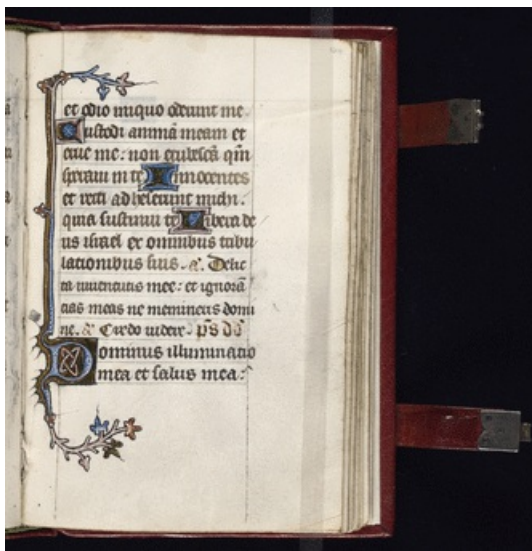 et odio iniquo oderunt me.
Custodi animā meam et
erue me: non erubescā qm̄
speraui in te Innocentes
et recti adheserunt michi.
quia sustinui te Libera de
us israel ex omnibus tribu
lationibus suis. a. Delic
ta iuuentutis mee: et ignorā
cias meas ne memineris domi
ne. a Credo videre. ps dd
Dominus illuminatio
mea et salus mea: